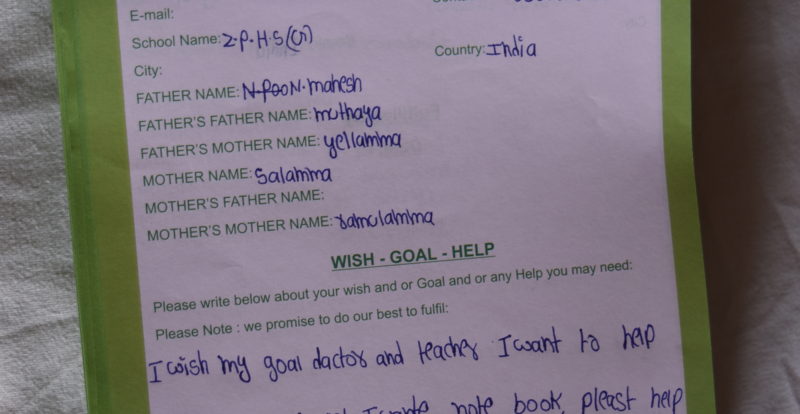 E-mail:
School Name: Z.P.H.S(G) Country: India
City:
FATHER NAME: N.POON.mahesh
FATHER'S FATHER NAME: muthaya
FATHER'S MOTHER NAME: yellamma
MOTHER NAME: Salamma
MOTHER'S FATHER NAME:
MOTHER'S MOTHER NAME: ramulamma
WISH - GOAL - HELP
Please write below about your wish and or Goal and or any Help you may need:
Please Note : we promise to do our best to fulfil:
I wish my goal dactor and teacher I want to help
note book pleast help